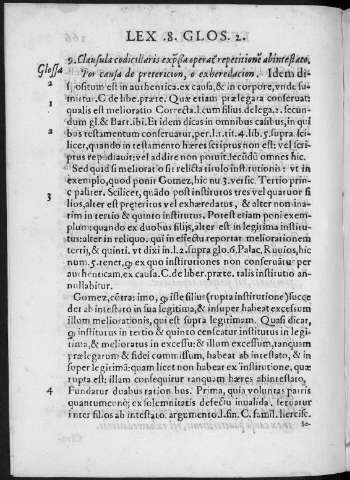 LEX .8. GLOS. 2.
9. Clausula codicillaris exp̃ssa operat̃ repetitionẽ ab intestato,
Glossa
Por causa de pretericion, o exheredacion. Idem di-
2
spositum est in authentica. ex causa, & in corpore, vnde su-
1
mitur. C. de libe. præte. Quæ etiam prælegara conseruat:
qualis est melioratio Correcta. l. cum illius. de lega. 2. secun-
2
dum gl. & Bart. ibi. Et idem dicas in omnibus casibus, in qui
bus testamentum conseruatur, per. l. 1. tit. 4. lib. 5. supra sci-
licet, quando in testamento hæres scriptus non est: vel scri-
ptus repudiauit: vel addire non potuit. secũdũ omnes hic.
Sed quid si melioratio sit relicta titulo institutionis: vt in
exemplo, quod ponit Gomez, hic nu. 3. versic. Tertio prin-
c paliter. Scilicet, quãdo post institutos tres vel quatuor fi
3
lios, alter est preteritus vel exhæredatus, & alter nomina-
tim in tertio & quinto institutus. Potest etiam poni exem-
plum: quando ex duobus filijs, alter est in legitima institu-
tus: alter in reliquo. qui in effectu reportat meliorationem
tertij, & quinti. vt dixi in. l. 2. supra glo. 6. Palac. Ruuios, hic
num. 5. tenet, q ex quo institutiones non conseruãtur per
authenticam, ex causa. C. de liber. præte. talis institutio an-
nullabitur.
Gomez, cõtra: imo, q iste filius (rupta institutione) succe
det ab intestato in sua legitima, & insuper habeat excessum
illum meliorationis, qui est supra legitimam. Quasi dicat,
q institutus in tertio & quinto censeatur institutus in legi-
tima, & melioratus in excessu: & illum excessum, tanquam
prælegarum & fidei commissum, habeat ab intestato, & in
super legitimã: quam licet non habeat ex institutione, quæ
rupta est: illam consequitur tanquam hæres ab intestato,
4
Fundatur duabus rationibus. Prima, quia voluntas patris
quantumcunq; ex solemnitatis defectu inualida, seruatur
inter filios ab intestato. argumento. l. fin. C. famil. hercisc.
Se-